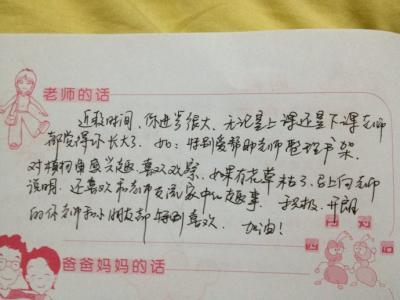 老师的话
近段时间、你进步很大、无论是上课还是下课老师
都觉得你长大了. 如：特别爱帮助老师整理书架.
对植物角感兴趣.喜欢观察.如果有花草枯了.马上向老师
说明.还喜欢和老师交流家中的趣事. 积极、开朗
的你老师和小朋友都特别喜欢. 加油！
爸爸妈妈的话